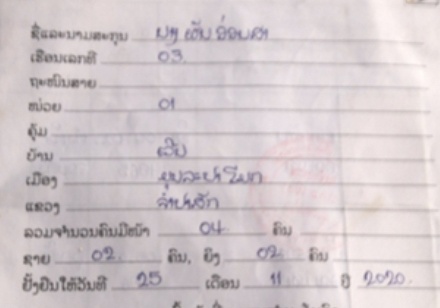 ຊື່ແລະນາມສະກຸນ ນາງ ເຕັນ ອ່ອນສາ
ເຮືອນເລກທີ 03
ຖະໜົນສາຍ
ໜ່ວຍ 01
ຄຸ້ມ
ບ້ານ
ເມືອງ
ແຂວງ ຈຳປາສັກ
ລວມຈຳນວນຄົນມີໜ້າ 04 ຄົນ
ຊາຍ 02 ຄົນ, ຍິງ 02 ຄົນ
ຢັ້ງຢືນໃຫ້ວັນທີ 25 ເດືອນ 11 ປີ 2020.